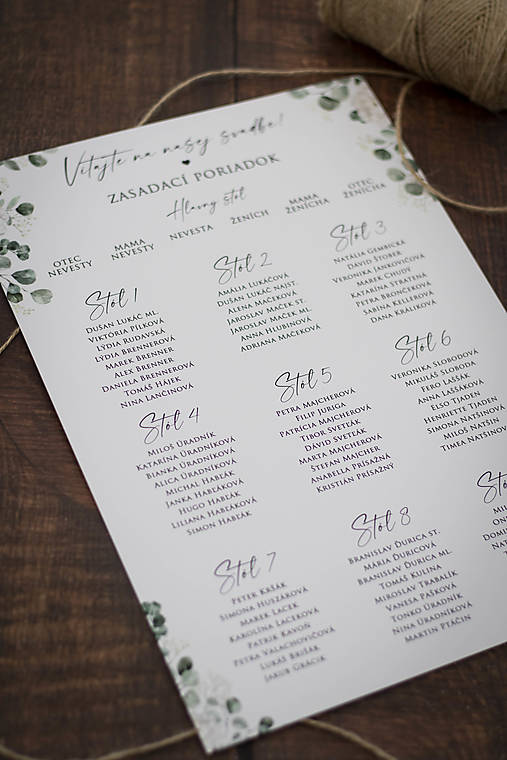 Vitajte na našej svadbe!
ZASADACÍ PORIADOK
Hlavný stôl
OTEC NEVESTY
MAMA NEVESTY
NEVESTA
ŽENÍCH
MAMA ŽENÍCHA
OTEC ŽENÍCHA
Stôl 1
DUŠAN LUKÁČ ML.
VIKTÓRIA PILKOVÁ
LÝDIA RUDAVSKÁ
LÝDIA BRENNEROVÁ
MAREK BRENNER
ALEX BRENNER
DANIELA BRENNEROVÁ
TOMÁŠ HÁJEK
NINA LANČINOVÁ
Stôl 2
AMÁLIA LUKÁČOVÁ
DUŠAN LUKÁČ NAJST.
ALENA MAČEKOVÁ
JAROSLAV MACEK ST.
JAROSLAV MACEK ML.
ANNA HLUBINOVÁ
ADRIANA MACEKOVÁ
Stôl 3
NATÁLIA GEMBICKÁ
DÁVID ŠTOBER
VERONIKA JANKOVIČOVÁ
MAREK CHUDÝ
KATARÍNA STRATENÁ
PETRA BRONČEKOVÁ
SABÍNA KELLEROVÁ
DANA KRÁLIKOVÁ
Stôl 4
MILOŠ ÚRADNÍK
KATARÍNA ÚRADNÍKOVÁ
BIANKA ÚRADNÍKOVÁ
ALICA ÚRADNÍKOVÁ
MICHAL HABĽÁK
JANKA HABĽÁKOVÁ
HUGO HABĽÁK
LILIANA HABĽÁKOVÁ
ŠIMON HABĽÁK
Stôl 5
PETRA MAJCHEROVÁ
FILIP JURIGA
PATRÍCIA MAJCHEROVÁ
TIBOR SVETĽÁK
DÁVID SVETĽÁK
MARTA MAJCHEROVÁ
ŠTEFAN MAJCHER
ANABELLA PRÍSAŽNÁ
KRISTIÁN PRÍSAŽNÝ
Stôl 6
VERONIKA SLOBODOVÁ
MIKULÁŠ SLOBODA
FERO LAŠŠÁK
ANNA LAŠŠÁKOVÁ
ELSO TJADEN
HENRIETTE TJADEN
SIMONA NATŠINOVÁ
MILOŠ NATŠIN
TIMEA NATŠINOV
Stôl 7
PETER KAŠÁK
SIMONA HUSZÁROVÁ
MAREK LACEK
KAROLÍNA LACEKOVÁ
PATRIK KAVOŇ
PETRA VALACHOVIČOVÁ
LUKÁŠ BRIŠÁK
JAKUB GRÁCIK
Stôl 8
BRANISLAV ĎURICA ST.
MÁRIA ĎURICOVÁ
BRANISLAV ĎURICA ML.
TOMÁŠ KULINA
MIROSLAV TRABALÍK
VANESA PAŠKOVÁ
TONKO ÚRADNÍK
NINA ÚRADNÍKOVÁ
MARTIN PTÁČIN